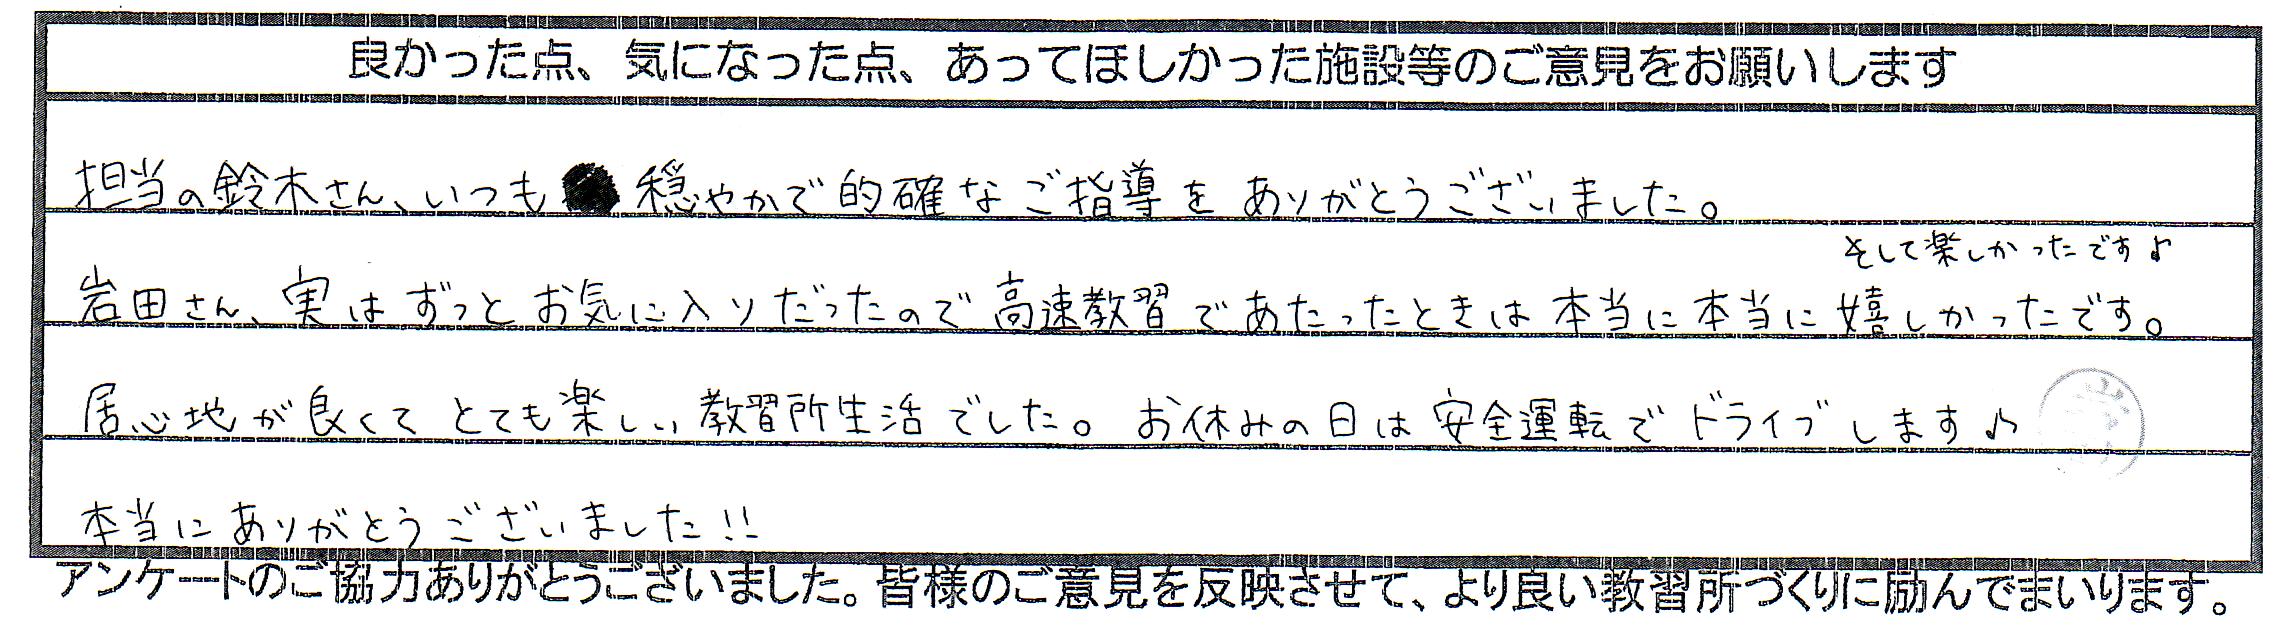 良かった点、気になった点、あってほしかった施設等のご意見をお願いします
担当の鈴木さん、いつも穏やかで的確なご指導をありがとうございました。
そして楽しかったです♪
岩田さん、実はずっとお気に入りだったので高速教習であたったときは本当に本当に嬉しかったです。
居心地が良くてとても楽しい教習所生活でした。お休みの日は安全運転でドライブします♪
本当にありがとうございました!!
アンケートのご協力ありがとうございました。皆様のご意見を反映させて、より良い教習所づくりに励んでまいります。